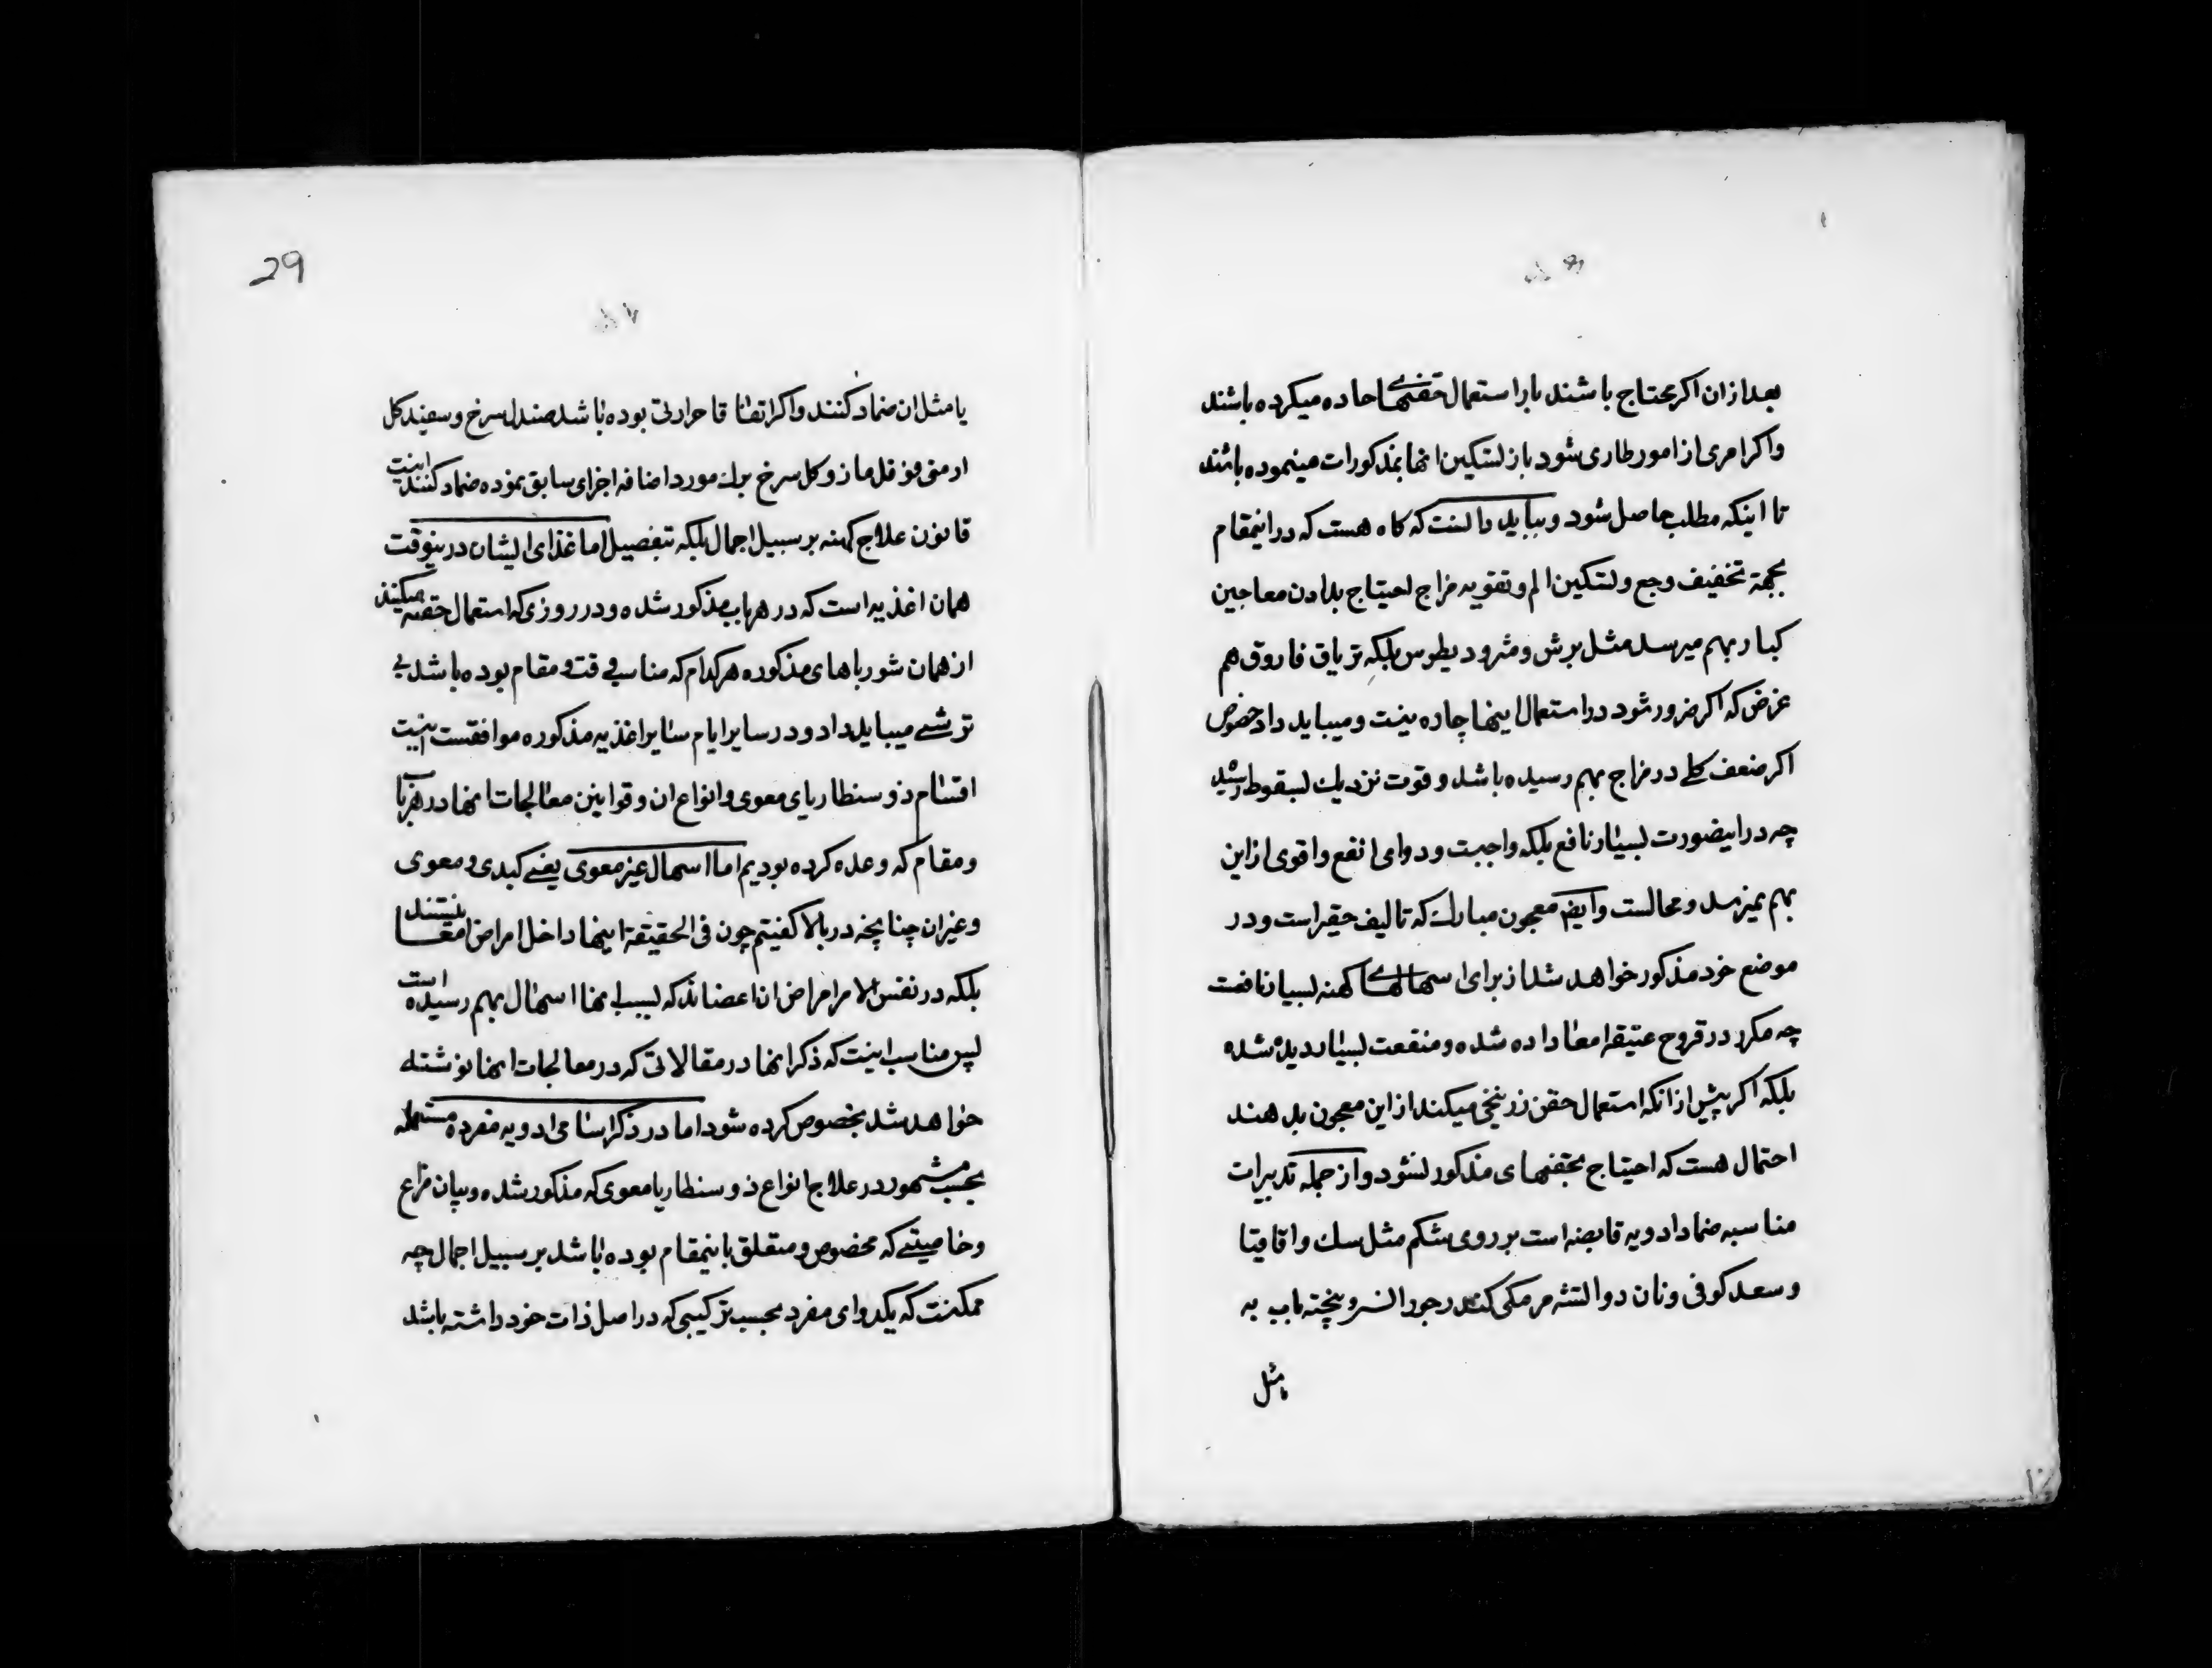 بعد از ان اکر محتاج باشند باز استعمال حقنهای حاده میکرده باشند
واکر امری از امور طاری شود باز لتسکین انها بمذکورات مینموده باشند
تا اینکه مطلب حاصل شود و بباید دانست که کاه هست که در اینمقام
بجهة تخفیف وجع و لتسکین الم و تقویه مزاج احتیاج بدادن معاجین
کبار بهم میرسد مثل برش و مثرودیطوس بلکه تریاق فاروق هم
غرض که اکر ضرور شود در استعمال اینها چاره نیست و میباید داد خصوص
اکر ضعف کلے در مزاج بهم رسیده باشد و قوت نزدیك لبسقوط رسید
چه در اینصورت لبسیار نافع بلکه واجبست و دوای انفع و اقوی از این
بهم نمیرسد و محالست وایضم معجون مبارك که تالیف حقیر است و در
موضع خود مذکور خواهد شد از برای اسهالهاے کهنه لبسیار نافعست
چه مکرر در قروح عتیقه امعا داده شده و منفعت لبسیار دیده شده
بلکه اکر پیش از انکه استعمال حقن زرنیخی میکند از این معجون بدهند
احتمال هست که احتیاج بحقنهای مذکور لنشود و از جمله تدبیرات
مناسبه ضماد ادویه قابضه است بر روی شکم مثل سك و اقاقیا
و سعد کوفی و نان دو التشه مر مکی کندر جوز السرو پخته باب به
یا مثل
29
یا مثل ان ضماد کنند و اکر اتفاقا حرارتی بوده باشد صندل سرخ و سفید کل
ارمنی فوفل مازو کل سرخ برك مورد اضافه اجزای سابق نموده ضماد کنند اینست
قانون علاج کهنه بر سبیل اجمال بلکه بتفصیل اما غذای الیشان در ینوقت
همان اغذیه است که در هر باب مذکور شده و در روزی که استعمال حقنه میکنند
از همان شورباهای مذکوره هر کدام که مناسب وقت و مقام بوده باشد بی
ترشے میباید داد و در سایر ایام سایر اغذیه مذکوره موافقست اینست
اقسام ذوسنطاریای معوی و انواع ان و قوانین معالجات انها در هر باب
و مقام که وعده کرده بودیم اما اسهال غیر معوی یعنے کبدی و معوی
و غیر ان چنانچه در بالا کفیتم چون فی الحقیقة اینها داخل امراض امعا نیستند
بلکه در نفس الامر امراض ان اعضاند که لبسبب انها اسهال بهم رسیده است
لپس مناسب اینست که ذکر انها در مقالاتی که در معالجات انها نوشته
خواهد شد بخصوص کرده شود اما در ذکر اسامی ادویه مفرده مستعمله
بحسب مشهور در علاج انواع ذوسنطاریا معوی که مذکور شده و بیان مزاج
و خاصیتے که مخصوص و متعلق باینمقام بوده باشد بر سبیل اجمال چه
ممکنست که یکدوای مفرد بحسب ترکیبی که در اصل ذات خود داشته باشد